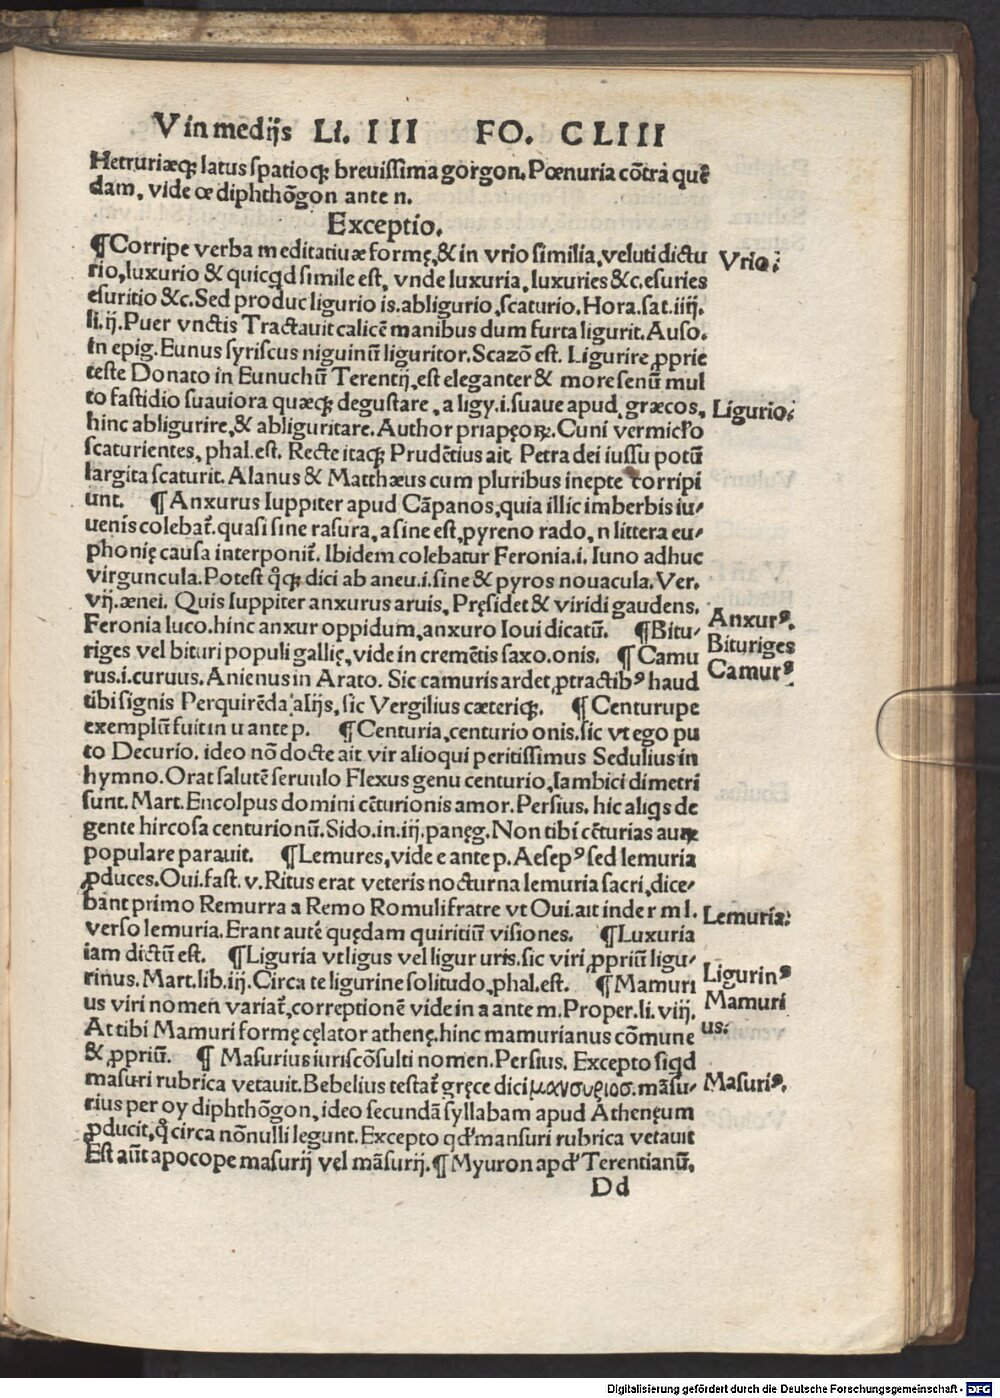 V in medijs Li. III FO. CLIII
Hetruriæq; latus spatioq; breuissima gorgon. Pœnuria cõtra quẽ
dam, vide œ diphthõgon ante n.
Exceptio.
¶Corripe verba meditatiuæ formę, & in vrio similia, veluti dictu
rio, luxurio & quicqd simile est, vnde luxuria, luxuries &c. esuries
esuritio &c. Sed produc ligurio is. abligurio, scaturio. Hora. sat. iiij.
li. ij. Puer vnctis Tractauit calicẽ manibus dum furta ligurit. Auso.
in epig. Eunus syriscus niguinũ liguritor. Scazõ est. Ligurire ꝓprie
teste Donato in Eunuchũ Terentij, est eleganter & more senũ mul
to fastidio suauiora quæq; degustare, a ligy. i. suaue apud græcos,
hinc abligurire, & abliguritare. Author priapęoꝝ. Cuni vermicl'o
scaturientes, phal. est. Recte itaq; Prudẽtius ait. Petra dei iussu potũ
largita scaturit. Alanus & Matthæus cum pluribus inepte corripi
unt. ¶Anxurus Iuppiter apud Cãpanos, quia illic imberbis iu⸗
uenis colebat̃. quasi sine rasura, a sine est, pyreno rado, n littera eu⸗
phonię causa interponit̃. Ibidem colebatur Feronia. i. Iuno adhuc
virguncula. Potest q̊q; dici ab aneu. i. sine & pyros nouacula. Ver.
vij. ænei. Quis Iuppiter anxurus aruis, Pręsidet & viridi gaudens,
Feronia luco. hinc anxur oppidum, anxuro Ioui dicatũ. ¶Bitu⸗
riges vel bituri populi gallię, vide in cremẽtis saxo. onis. ¶Camu
rus. i. curuus. Anienus in Arato. Sic camuris ardet ꝓtractibꝰ haud
tibi signis Perquirẽda alijs, sic Vergilius cæteriq;. ¶Centurupe
exemplũ fuit in u ante p. ¶Centuria, centurio onis. sic vt ego pu
to Decurio. ideo nõ docte ait vir alioqui peritissimus Sedulius in
hymno. Orat salutẽ seruulo Flexus genu centurio, Iambici dimetri
sunt. Mart. Encolpus domini cẽturionis amor. Persius. hic aliqs de
gente hircosa centurionũ. Sido. in. iij. panęg. Non tibi cẽturias auꝝ
populare parauit. ¶Lemures, vide e ante p. Aesepꝰ sed lemuria
ꝓduces. Oui. fast. v. Ritus erat veteris nocturna lemuria sacri, dice⸗
bant primo Remurra a Remo Romuli fratre vt Oui. ait inde r m l.
verso lemuria. Erant autẽ quędam quiritiũ visiones. ¶Luxuria
iam dictũ est. ¶Liguria vt ligus vel ligur uris. sic viri ꝓpriũ ligu⸗
rinus. Mart. lib. iij. Circa te ligurine solitudo, phal. est. ¶Mamuri
us viri nomen variat̃, correptionẽ vide in a ante m. Proper. li. viij.
At tibi Mamuri formę cęlator athenę. hinc mamurianus cõmune
& ꝓpriũ. ¶Masurius iuriscõsulti nomen. Persius. Excepto siqd
masuri rubrica vetauit. Bebelius testat̃ gręce dici μανσυριοσ. mãsu⸗
rius per oy diphthõgon, ideo secundã syllabam apud Athenęum
ꝓducit, q̊ circa nõnulli legunt. Excepto qd' mansuri rubrica vetauit
Est aũt apocope masurij vel mãsurij. ¶Myuron apd' Terentianũ.
Dd
Vrio:
Ligurio:
Anxurꝰ.
Bituriges
Camurꝰ
Lemuria:
Ligurinꝰ
Mamuri
us:
Masuriꝰ.
Digitalisierung gefördert durch die Deutsche Forschungsgemeinschaft - DFG